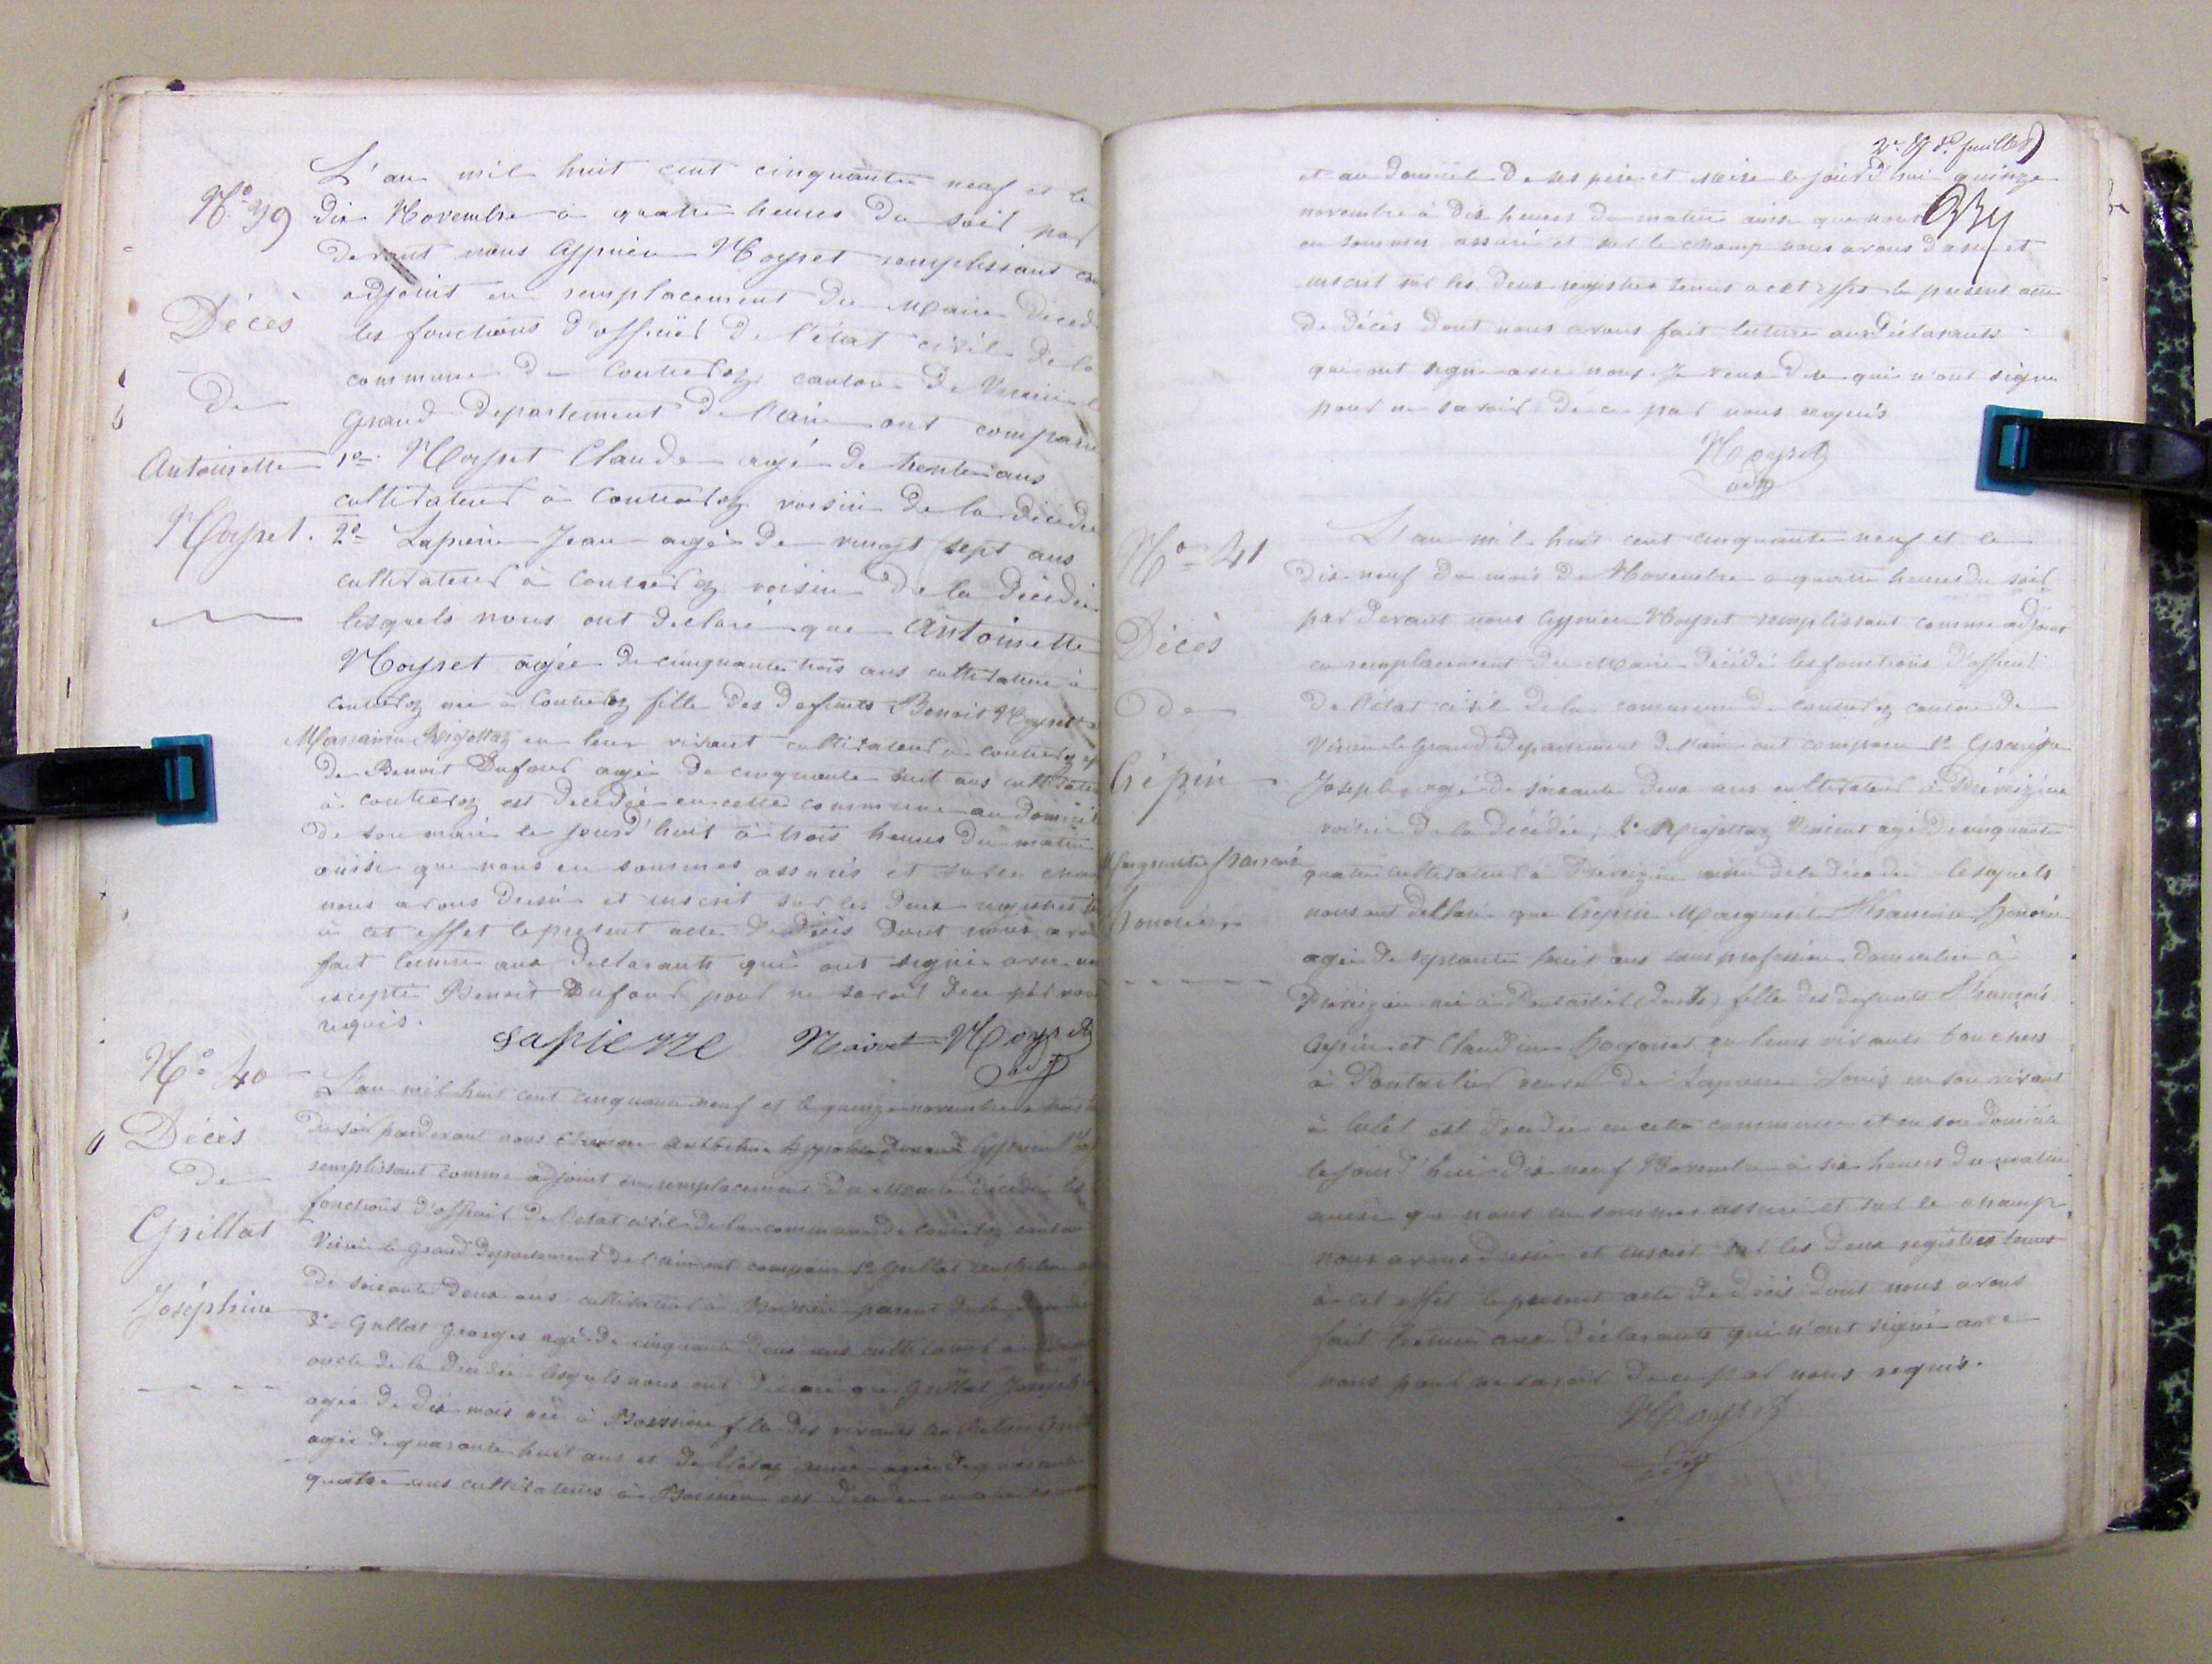 L'an mil huit cent cinquante neuf et le
N° 39 dix Novembre à quatre heures du soir par
devant nous Cyprien Moyret remplissant
adjoint en remplacement du Maire décédé
Décès les fonctions d'officier de l'état civil de la
commune de Contrevoz canton de Virieu
De
Grand departement de l'ain ont comparu
Antoinette 1° Moyret Claude agé de trente ans
cultivateur à Contrevoz voisin de la décédée
Moyret. 2° Lapierre Jean agé de vingt sept ans
cultivateur à Contrevoz voisin de la décédée
lesquels nous ont déclaré que Antoinette
Moyret agée de cinquante trois ans cultivatrice à
contrevoz née à Contrevoz fille des defunts Benoit Moyret
en leur vivant cultivateurs à contrevoz
de Benoit Dufour agé de cinquante huit ans
à contrevoz est décédée en cette commune au domicile
de son mari le jourd'huit à trois heures du matin
ainsi que nous en sommes assurés et sur le
nous avons dressé et inscrit sur les deux registres
à cet effet le present acte de décès dont nous
fait lecture aux declarants qui ont signé avec
excepté Benoit Dufour pour ne savoir de ce par nous
requis.
Lapierre Moyret
adj
N° 40
L'an mil huit cent cinquante neuf et le quinze novembre à
Décès du soir pardevant nous Cyprien
De remplissant comme adjoint en remplacement du Maire décédé les
fonctions d'officier de l'état civil de la commune de contrevoz canton
Grillat Virieu le Grand Departement de l'ain ont comparu 1° Grillat
de soixante deux ans cultivateur à Boissieu parent de la
Joséphine
2° Grillat Georges agé de cinquante deux ans cultivateur à
oncle de la décédée lesquels nous ont déclaré que Grillat Joséphine
agée de dix mois née à Boissieu fille des vivants
agé de quarante huit ans et de
quatre ans cultivateurs à Boissieu est décédée en cette
2e & de feuillet
et au domicile de ses père et mère le jourd'hui quinze
novembre à dix heures du matin ainsi que nous
en sommes assurés et sur le champ nous avons dressé et
inscrit sur les deux registres tenus a cet effet le présent acte
de décès dont nous avons fait lecture aux déclarants
qui ont signé avec nous. qui n'ont signé
pour ne savoir de ce par nous requis
Moyret
adj
L'an mil huit cent cinquante neuf et le
N° 41 dix neuf du mois de Novembre à quatre heures du soir
par devant nous Cyprien Moyret remplissant comme adjoint
Décès en remplacement du Maire décédé les fonctions d'officier
De de l'état civil de la commune de contrevoz canton de
Virieu le Grand Departement de l'ain ont comparu 1°
Crépin Joseph agé de soixante deux ans cultivateur à
voisin de la décédée, 2° Vincent agé de cinquante
Marguerite françoise quatre cultivateur à voisin de la décédée lesquels
honorée nous ont déclaré que Crépin Marguerite Francoise honorée
agée de septante huit ans sans profession domiciliée à
née à Pontarlier (doubs) fille des defunts François
Crépin et Claudine en leurs vivants bouchers
à Pontarlier veuve de Lapierre Louis en son vivant
à est décédée en cette commune et en son domicile
le jourd'hui dix neuf Novembre à six heures du matin
ainsi que nous en sommes assuré et sur le champ
nous avons dressé et inscrit sur les deux registres tenus
à cet effet le présent acte de décès dont nous avons
fait lecture aux déclarants qui n'ont signé avec
nous pour ne savoir de ce par nous requis.
Moyret
adj